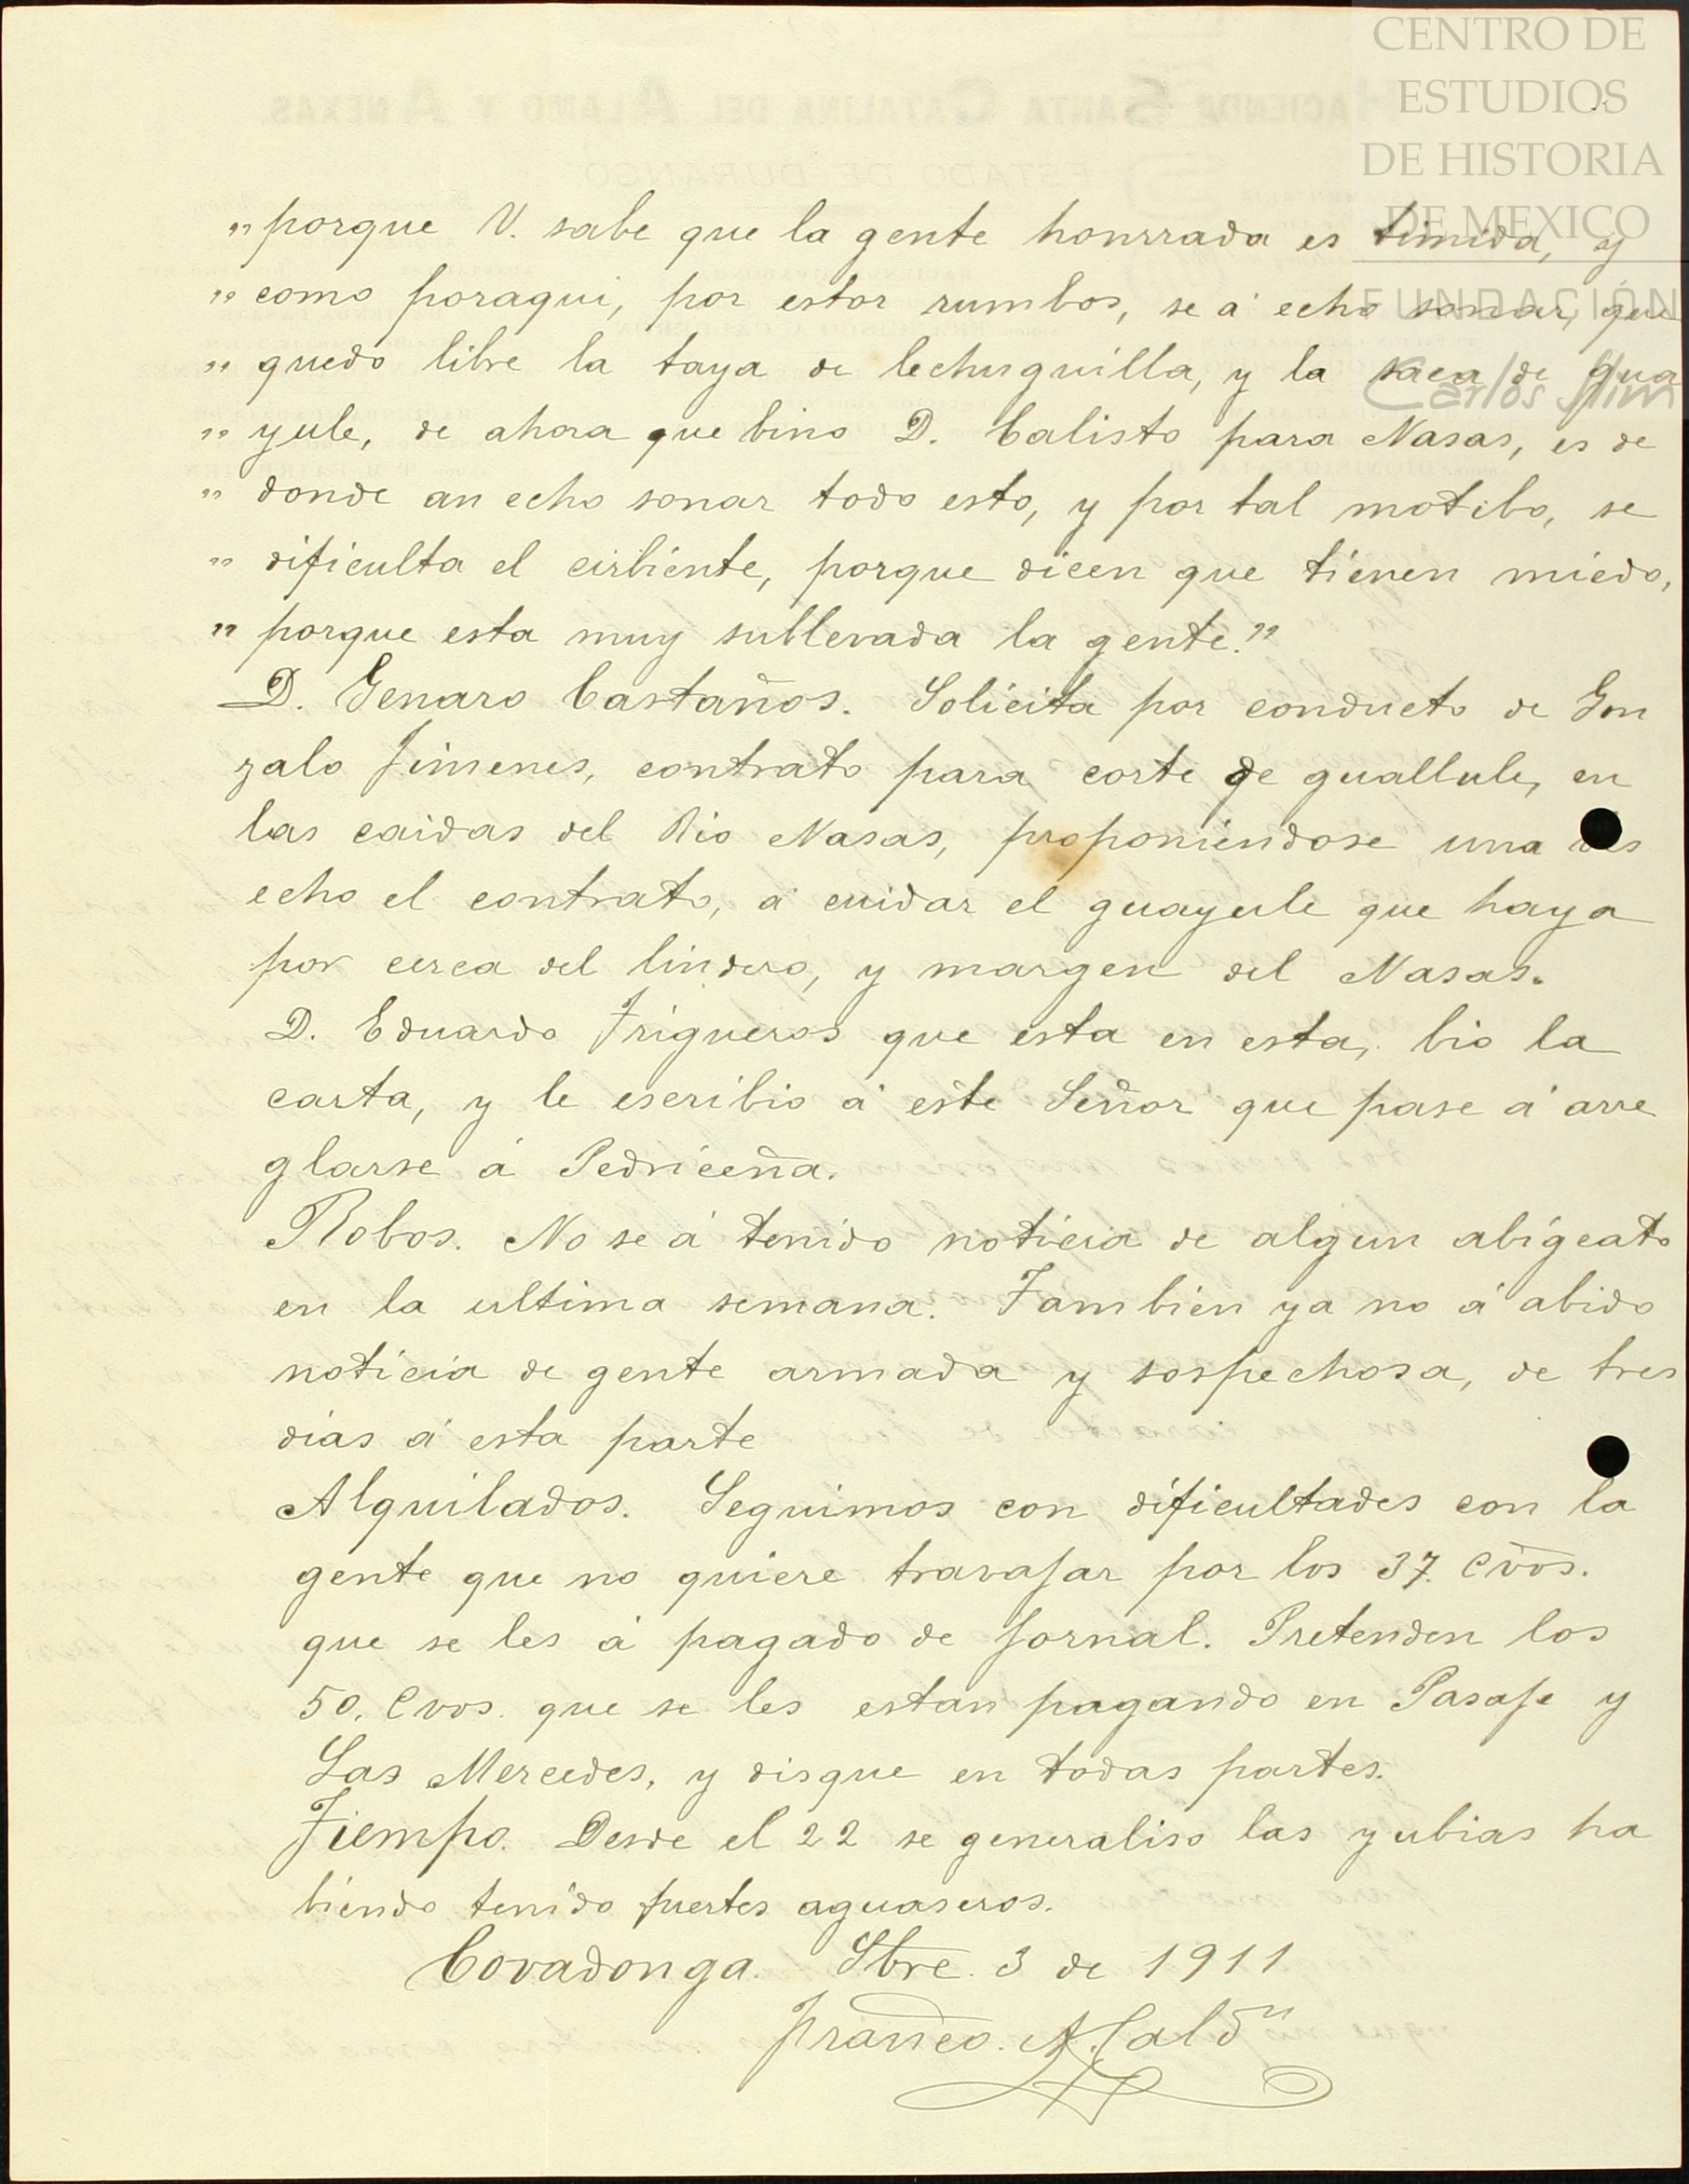 CENTRO DE
ESTUDIOS
DE HISTORIA
DE MEXICO
FUNDACIÓN
Carlos Slim
"porque V. sabe que la gente honrrada es timida, y
" como poraqui, por estor rumbos, se á echo sonar, que
" quedo libre la taya de lechuguilla, y la saca de gua
" yule, de ahora que bino D. Calisto para Nasas, es de
" donde an echo sonar todo esto, y por tal motibo, se
" dificulta el cirbiente, porque dicen que tienen miedo,
" porque esta muy sublevada la gente."
D. Genaro Castaños. Solicita por conducto de Gon
zalo Jimenes, contrato para corte de guallule, en
las caidas del Rio Nasas, proponiendose una ves
echo el contrato, á cuidar el guayule que haya
por cerca del lindero, y margen del Nasas.
D. Eduardo Trigueros que esta en esta, bio la
carta, y le escribio á este Señor que pase á arre
glarse á Pedriceña.
Robos. No se á tenido noticia de algun abigeato
en la ultima semana. Tambien ya no á abido
noticia de gente armada y sospechosa, de tres
dias á esta parte
Alquilados. Seguimos con dificultades con la
gente que no quiere travajar por los 37. Cvos.
que se les á pagado de jornal. Pretenden los
50. Cvos. que se les estan pagando en Pasaje y
Las Mercedes, y disque en todas partes.
Tiempo. Desde el 22 se generaliso las yubias ha
biendo tenido fuertes aguaseros.
Covadonga. Sbre. 3 de 1911
Franco. A. Caldn
HACIENDA SANTA CATALINA DEL ALAMO Y ANEXAS.
ESTADO DE DURANGO